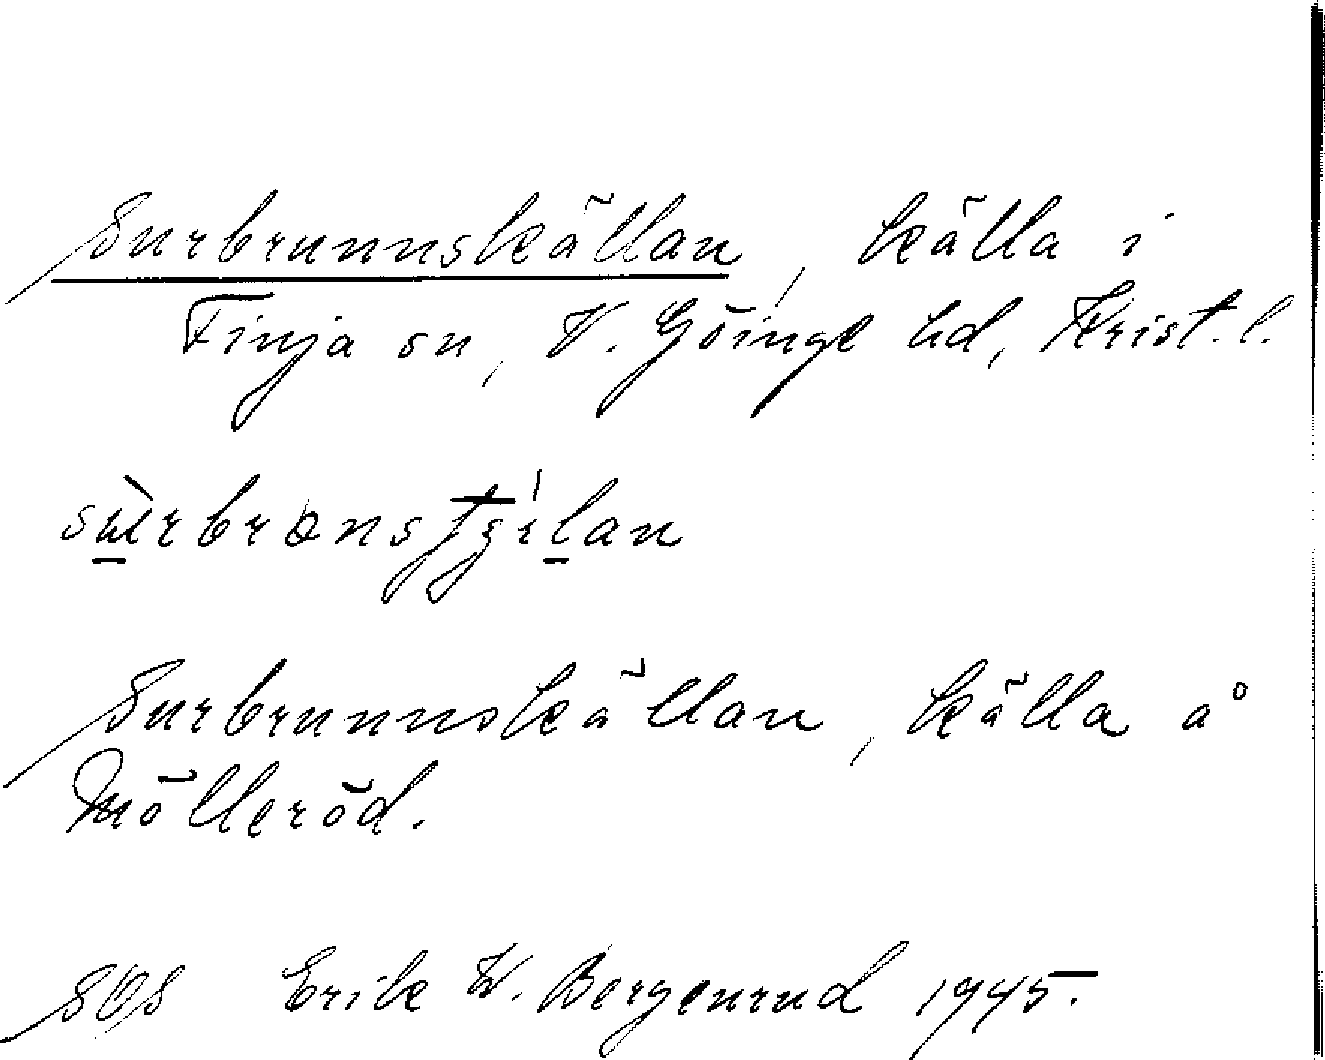 Surbrunnskällan, källa i
Finja sn, V. Göinge hd, Krist. l.
Surbrunnskällan, källa å
Mölleröd.
SOS Erik W. Bergenrud 1945.